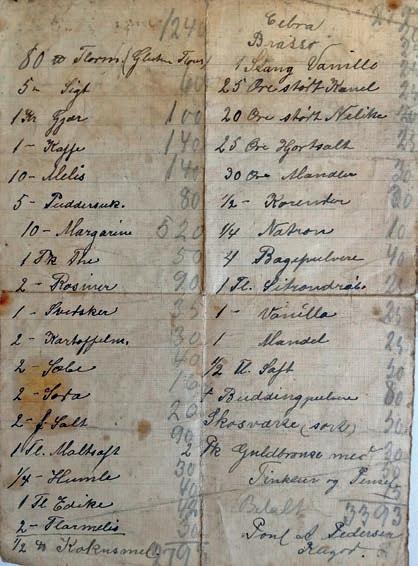 1240
80 ℔ Florm. (Gluten Flour)
5 " Sigt
1 Kr Gjær 100
1 - Kaffe 140
10 - Melis 140
5 - Puddersuk. 80
10 - Margarine 520
1 Pk The 50
2 - Rosiner 90
1 - Svetsker 35
2 - Kartoffelm. 30
2 - Sæbe 40
2 - Soda 16
2 - f. Salt 20
1 Fl. Maltsaft 90
1/4 - Humle 50
1 Fl Edike
2 - Flormelis
1/2 ℔ Kokusmel
Cebra
Brasso
1 Stang Vanille
25 Øre stødt Kanel
20 Øre stødt Nelike
25 Øre Hjortsalt 25
30 Øre Mandler 30
1/2 - Korender
1/4 Natron 10
4 Bagepulvere 40
1 Fl. Citrondråbe
1 - Vanilla 25
1 - Mandel 25
1/2 Fl. Saft 50
Buddingpulvere
Skosværte (sort)
Pk Guldbronse med
Tinktur og Pensel
Betalt 3393
Poul A Pedersen